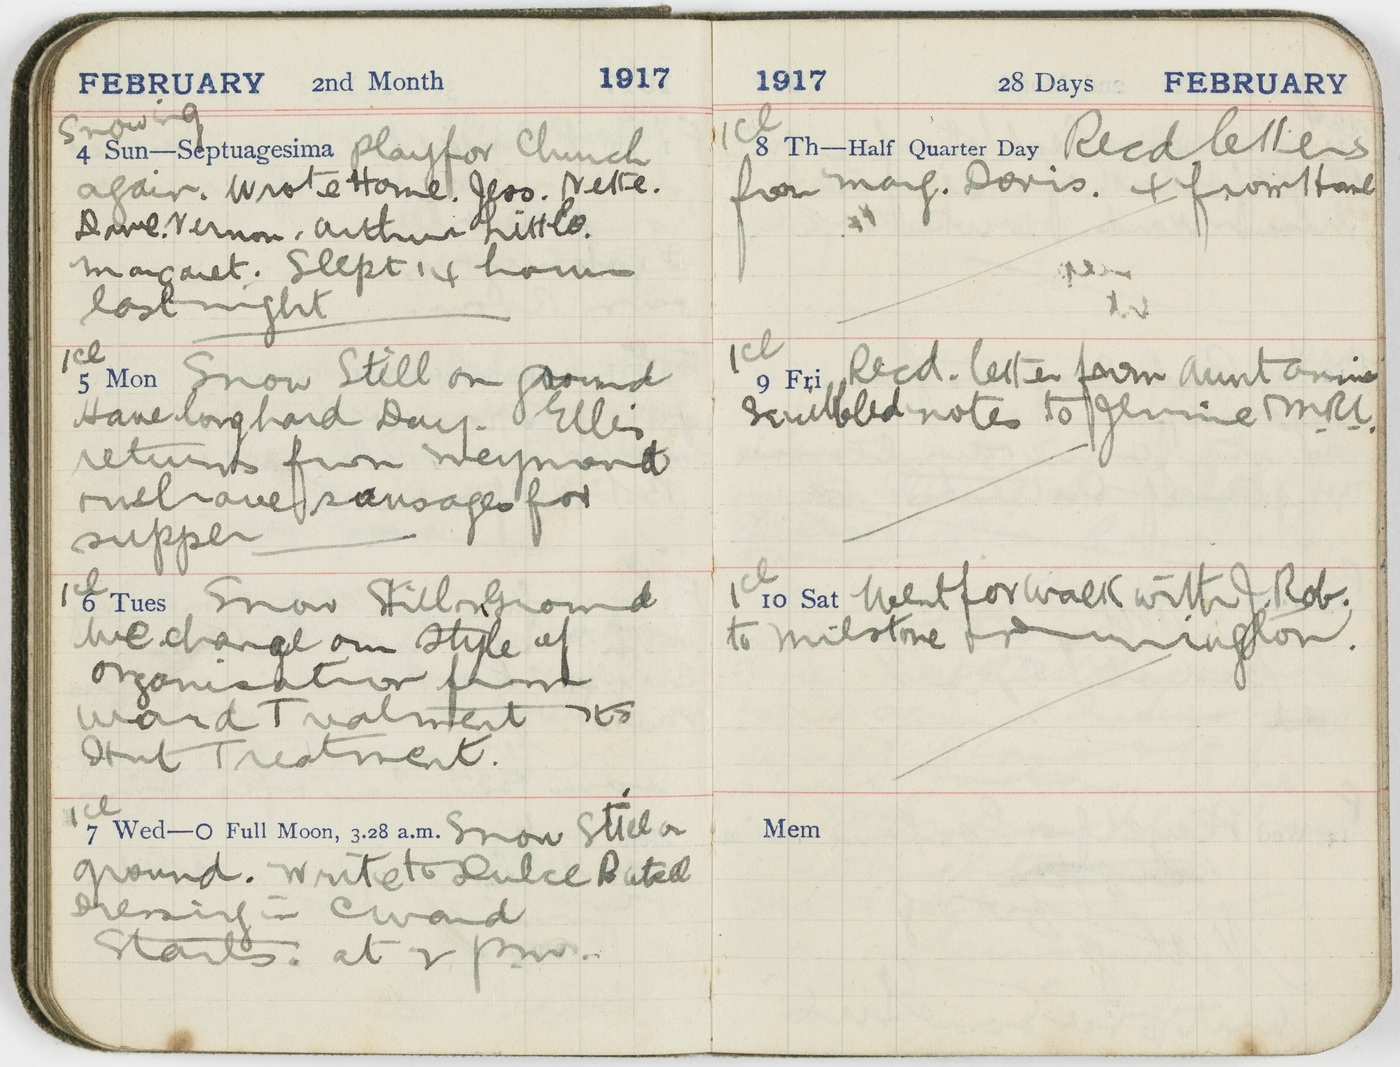 FEBRUARY 2nd Month 1917
Snowing
4 Sun—Septuagesima Play for Church
again. Wrote Home. Jess. Nette.
Dave. Vernon. Arthur Little.
Margaret. Slept 14 hours
last night
Icl
5 Mon Snow Still on ground
Have long hard Day. Ellis
returns from
have sausages for
supper
Icl
6 Tues Snow Still on Ground
We change our Style of
organisation from
ward Treatment to
Hut Treatment.
Icl
7 Wed—O Full Moon, 3.28 a.m. Snow Still on
ground. Write to Dulce
Dressing in C ward
Starts. at 2 pm.
1917 28 Days FEBRUARY
Icl
8 Th—Half Quarter Day Recd letters
from Marg. Doris. & from Home
Icl
9 Fri Recd. letter from Aunt Annie
Scribbled notes to
Icl
10 Sat Went for walk with J. Rob.
to Milstone
Mem